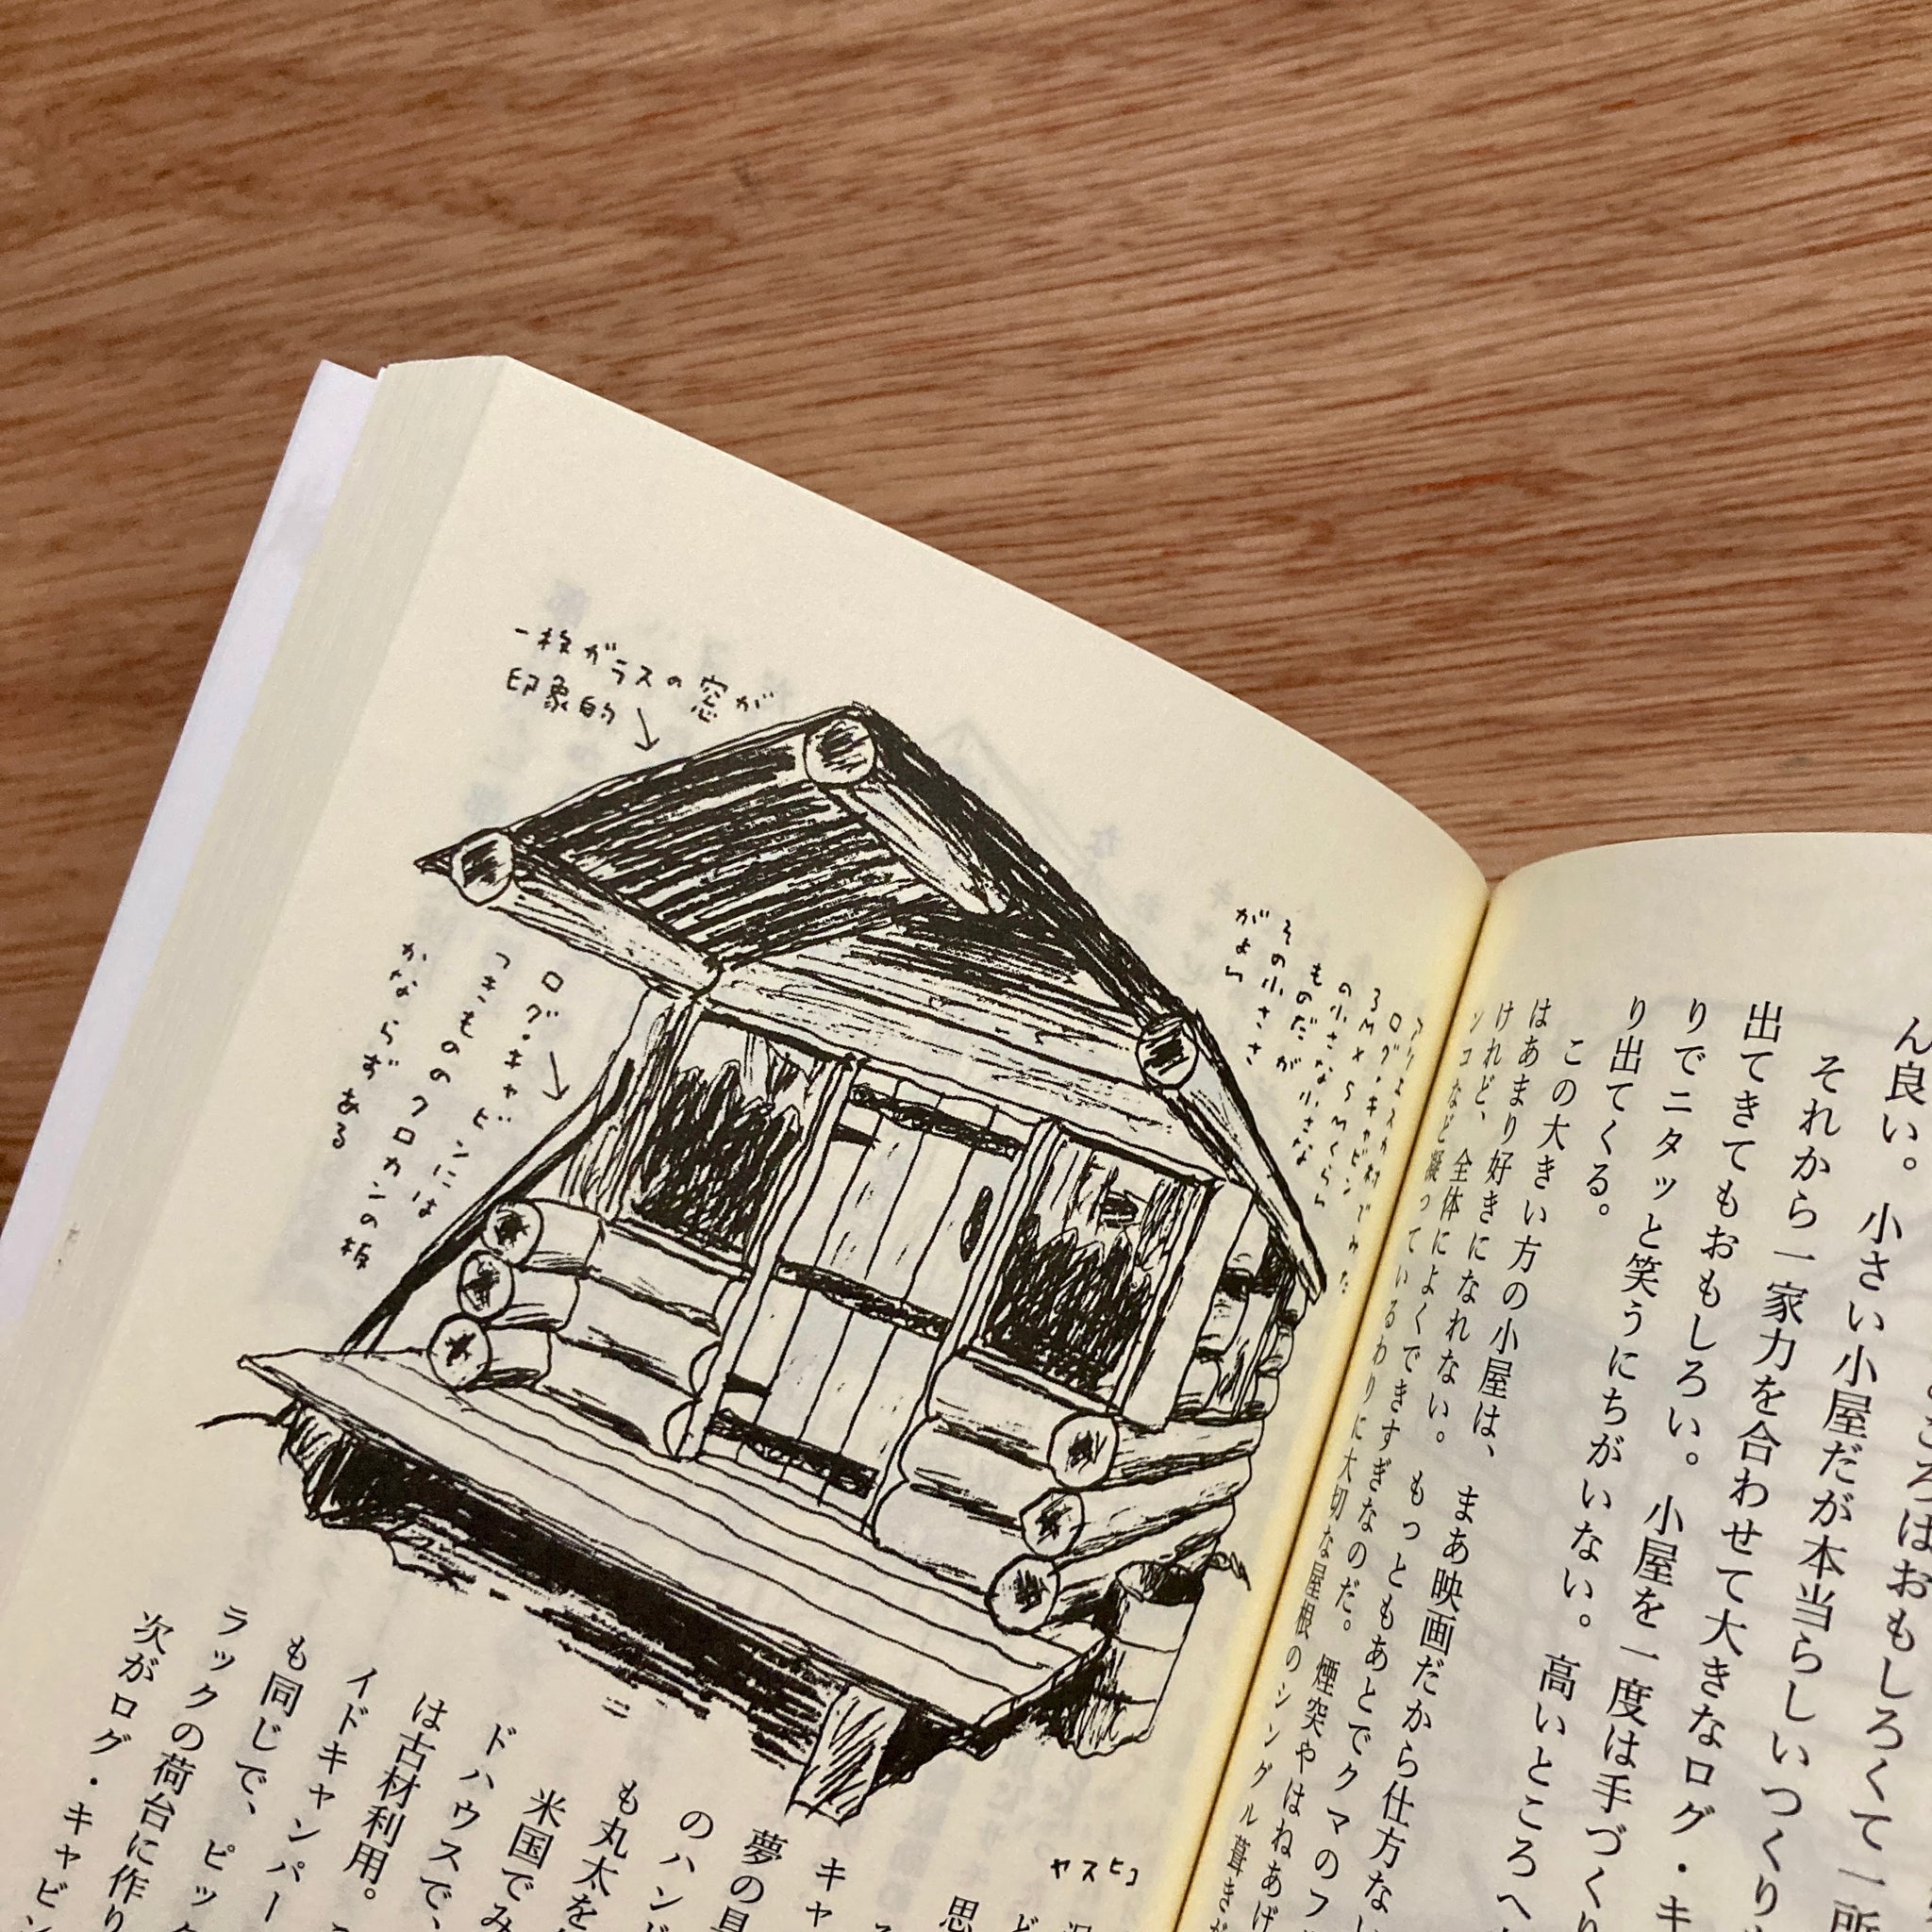 ん良い。小さい小屋だが本当らしいつくり
それから一家力を合わせて大きなログ・キ
出てきてもおもしろい。小屋を一度は手づくり
りでニタッと笑うにちがいない。高いところへ
り出てくる。
この大きい方の小屋は、まあ映画だから仕方ない
はあまり好きになれない。もっともあとでクマのフ
けれど、全体によくできすぎなのだ。煙突やはねあげ
ソコなど凝っているわりに大切な屋根のシングル葺きが
アリエスカ村でみた
ログ・キャビン
3M×5Mくらい
の小さな小さな
ものだが
その小ささ
がよい
一枚ガラスの窓が
印象的
ログ・キャビンには
つきもののフロカンの板
かならずある
ヤスヒコ
思
キャ
夢の具
のハンド
も丸太を
米国でみ
ドハウスで、
は古材利用。
イドキャンパー
も同じで、ピック
ラックの荷台に作り
次がログ・キャビン